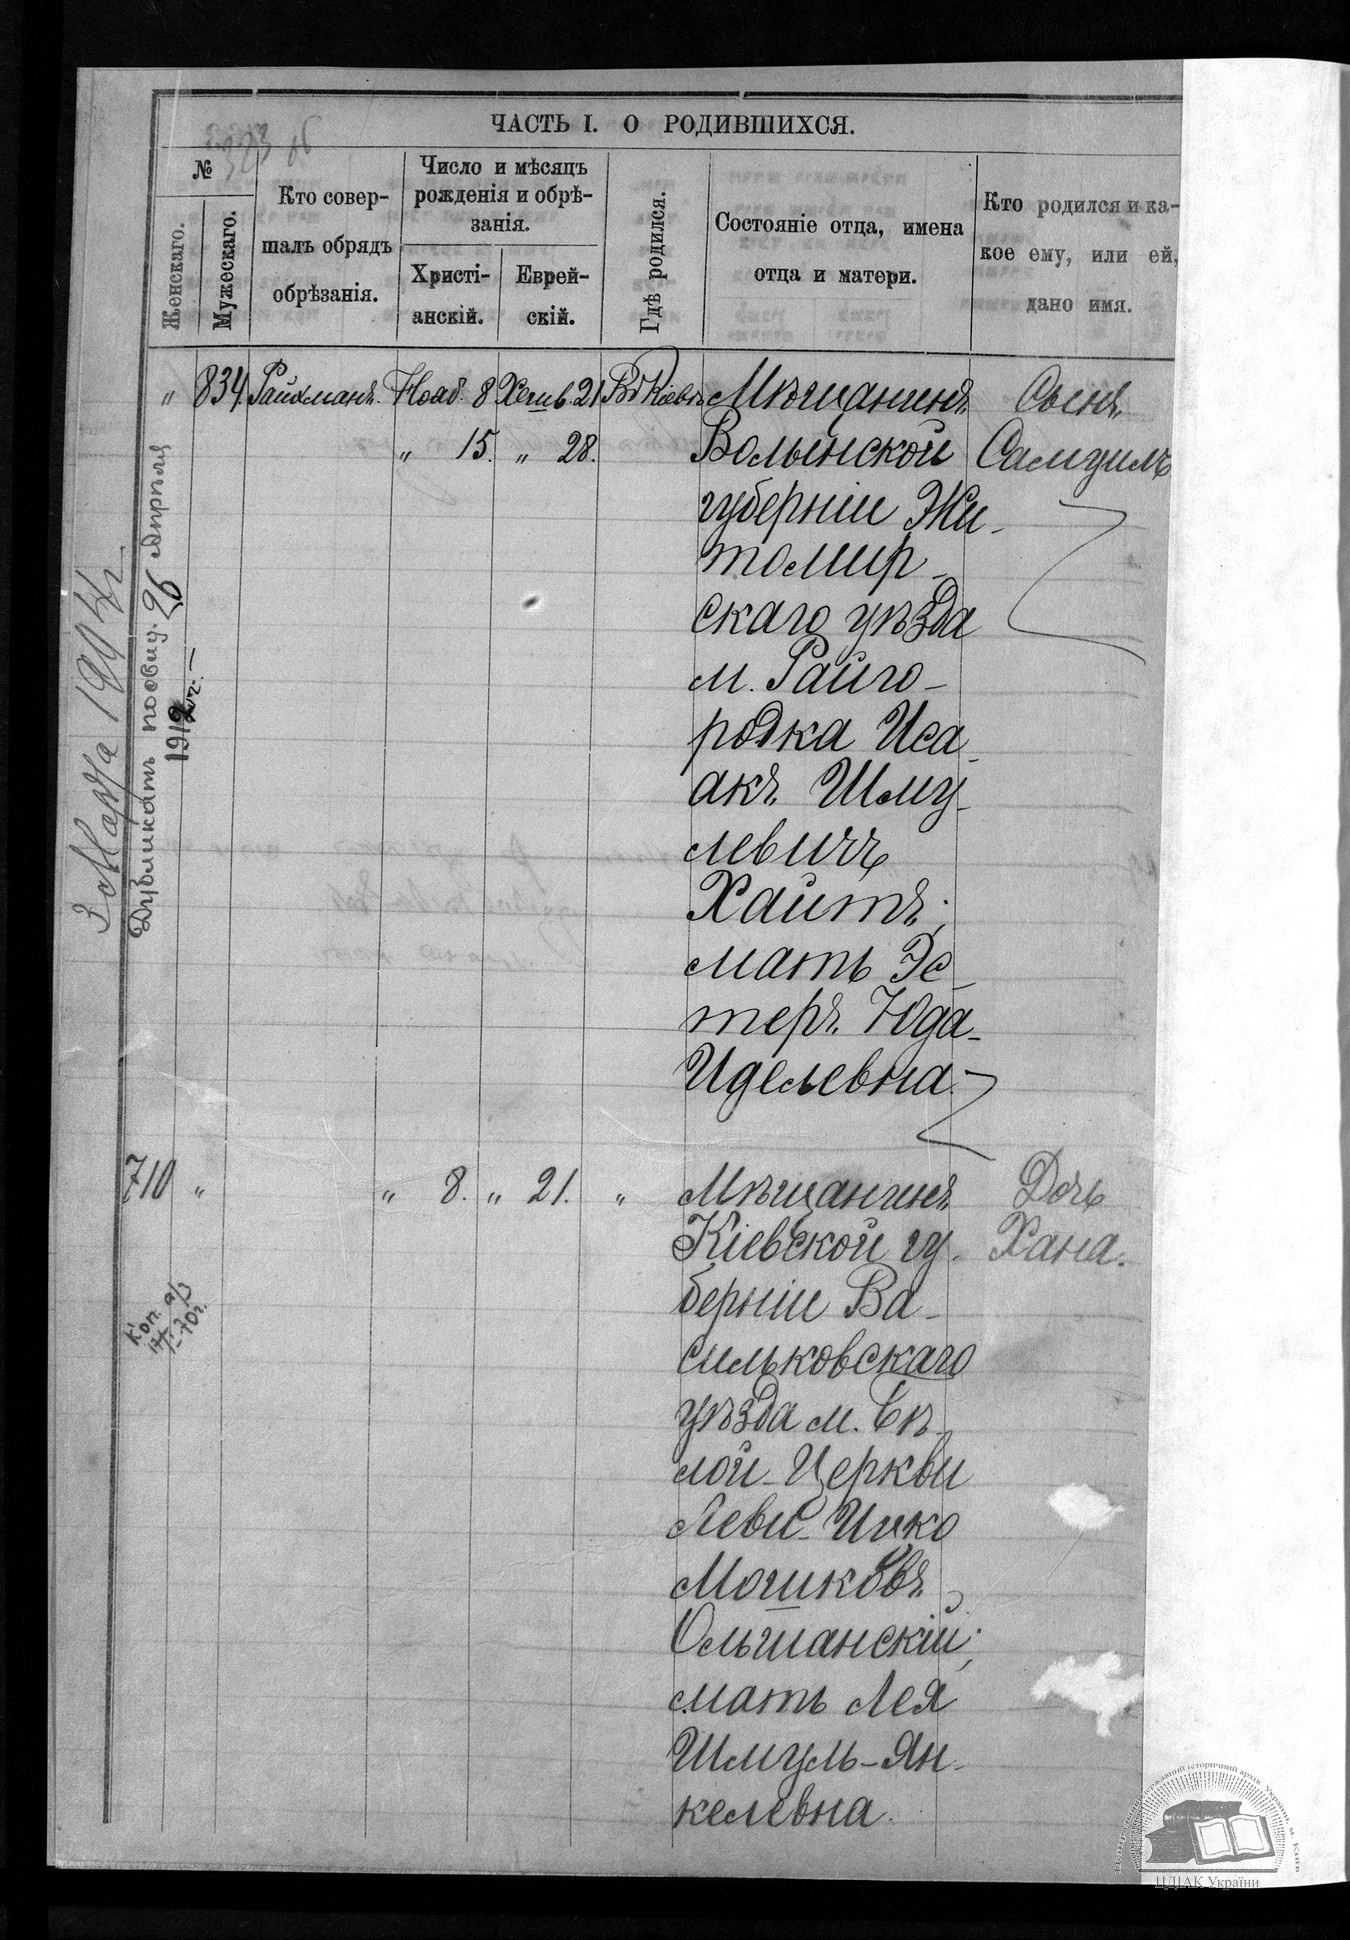 323 об
ЧАСТЬ I. О РОДИВШИХСЯ.
№
Женскаго.
Мужескаго.
Кто совер-
шалъ обрядъ
обрѣзанія.
Число и мѣсяцъ
рожденія и обрѣ-
занія.
Христі-
анскій.
Еврей-
скій.
Гдѣ родился.
Состояніе отца, имена
отца и матери.
Кто родился и ка-
кое ему, или ей,
дано имя.
" 834 Райхманъ. Нояб. 8 Хешв. 21 Въ Кіевѣ
" 15. " 28.
Мѣщанинъ
Волынской
губерніи Жи-
томир-
скаго уѣзда
м. Райго-
родка Иса-
акъ Шму-
левичъ
Хаитъ;
мать Эс-
теръ Юда-
Иделевна.
Сынъ
Самуилъ
3 Марта 1904 г.
Дубликатъ посвид. 26 Апрѣля
1912 г. —
710 " " 8. " 21. "
Мѣщанинъ
Кіевской гу-
берніи Ва-
сильковскаго
уѣзда м. Бѣ-
лой-Церкви
Леви-Ицко
Мошковъ
Ольшанскій;
мать Лея
Шмуль-Ян-
келевна.
Дочь
Хана.
Коп. а/з
17/I-70г.
Центральний державний історичний архів України, м. Київ
ЦДІАК України